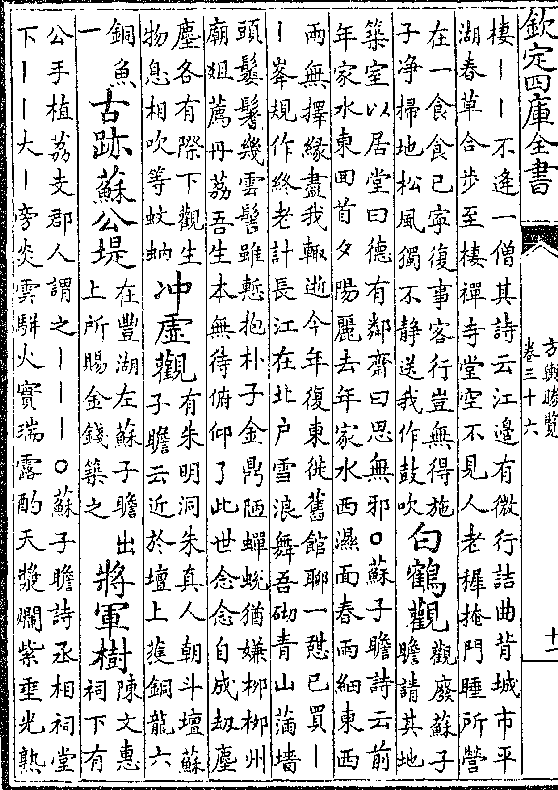 欽定四庫全書
方輿勝覽
卷三十六
十二
棲丨丨不逢一僧其詩云江邉有微行詰曲背城市平
湖春草合步至棲禪寺堂空不見人老穉掩門睡所營
在一食食已寧復事客行豈無得施
子净掃地松風獨不静送我作鼓吹
白鶴觀
觀廢蘇子
瞻請其地
築室以居堂曰德有鄰齋曰思無邪○蘇子瞻詩云前
年家水東回首夕陽麗去年家水西濕面春雨細東西
兩無擇緣盡我輒逝今年復東徙舊館聊一憩已買丨
丨峯規作終老計長江在北户雪浪舞吾砌青山滿墻
頭鬟髻幾雲髻雖慙抱朴子金鼎陋蟬蛻猶嫌柳柳州
廟俎薦丹荔吾生本無待俯仰了此世念念自成刼塵
塵各有際下觀生
物息相吹等蚊蚋
冲虛觀
有朱明洞朱真人朝斗壇蘇
子瞻云近於壇上獲銅龍六
銅魚
一
古跡蘇公堤
在豐湖左蘇子瞻出
上所賜金錢築之
將軍樹
陳文惠
祠下有
公手植荔支郡人謂之丨丨丨○蘇子瞻詩丞相祠堂
下丨丨大丨旁炎雲駢火實瑞露酌天漿爛紫垂光熟